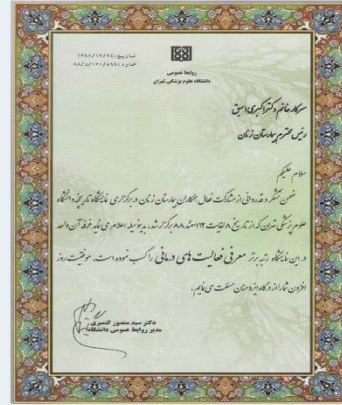 روابط عمومی
دانشگاه علوم پزشکی تهران
سرکار خانم دکتر اکبری اسبق
رئیس محترم بیمارستان زنان
سلام علیکم
ضمن تشکر و قدردانی از مشارکت فعال همکاران بیمارستان زنان در برگزاری نمایشگاه تاریخچه دانشگاه
علوم پزشکی تهران که از تاریخ لغایت برگزار شد، بدینوسیله اعلام می نماید غرفه آن واحد
در این نمایشگاه رتبه برتر معرفی فعالیت های درمانی را کسب نموده است. موفقیت روز
افزون شما را از درگاه ایزد منان مسئلت می نمایم.
دکتر سید منصور
مدیر روابط عمومی دانشگاه